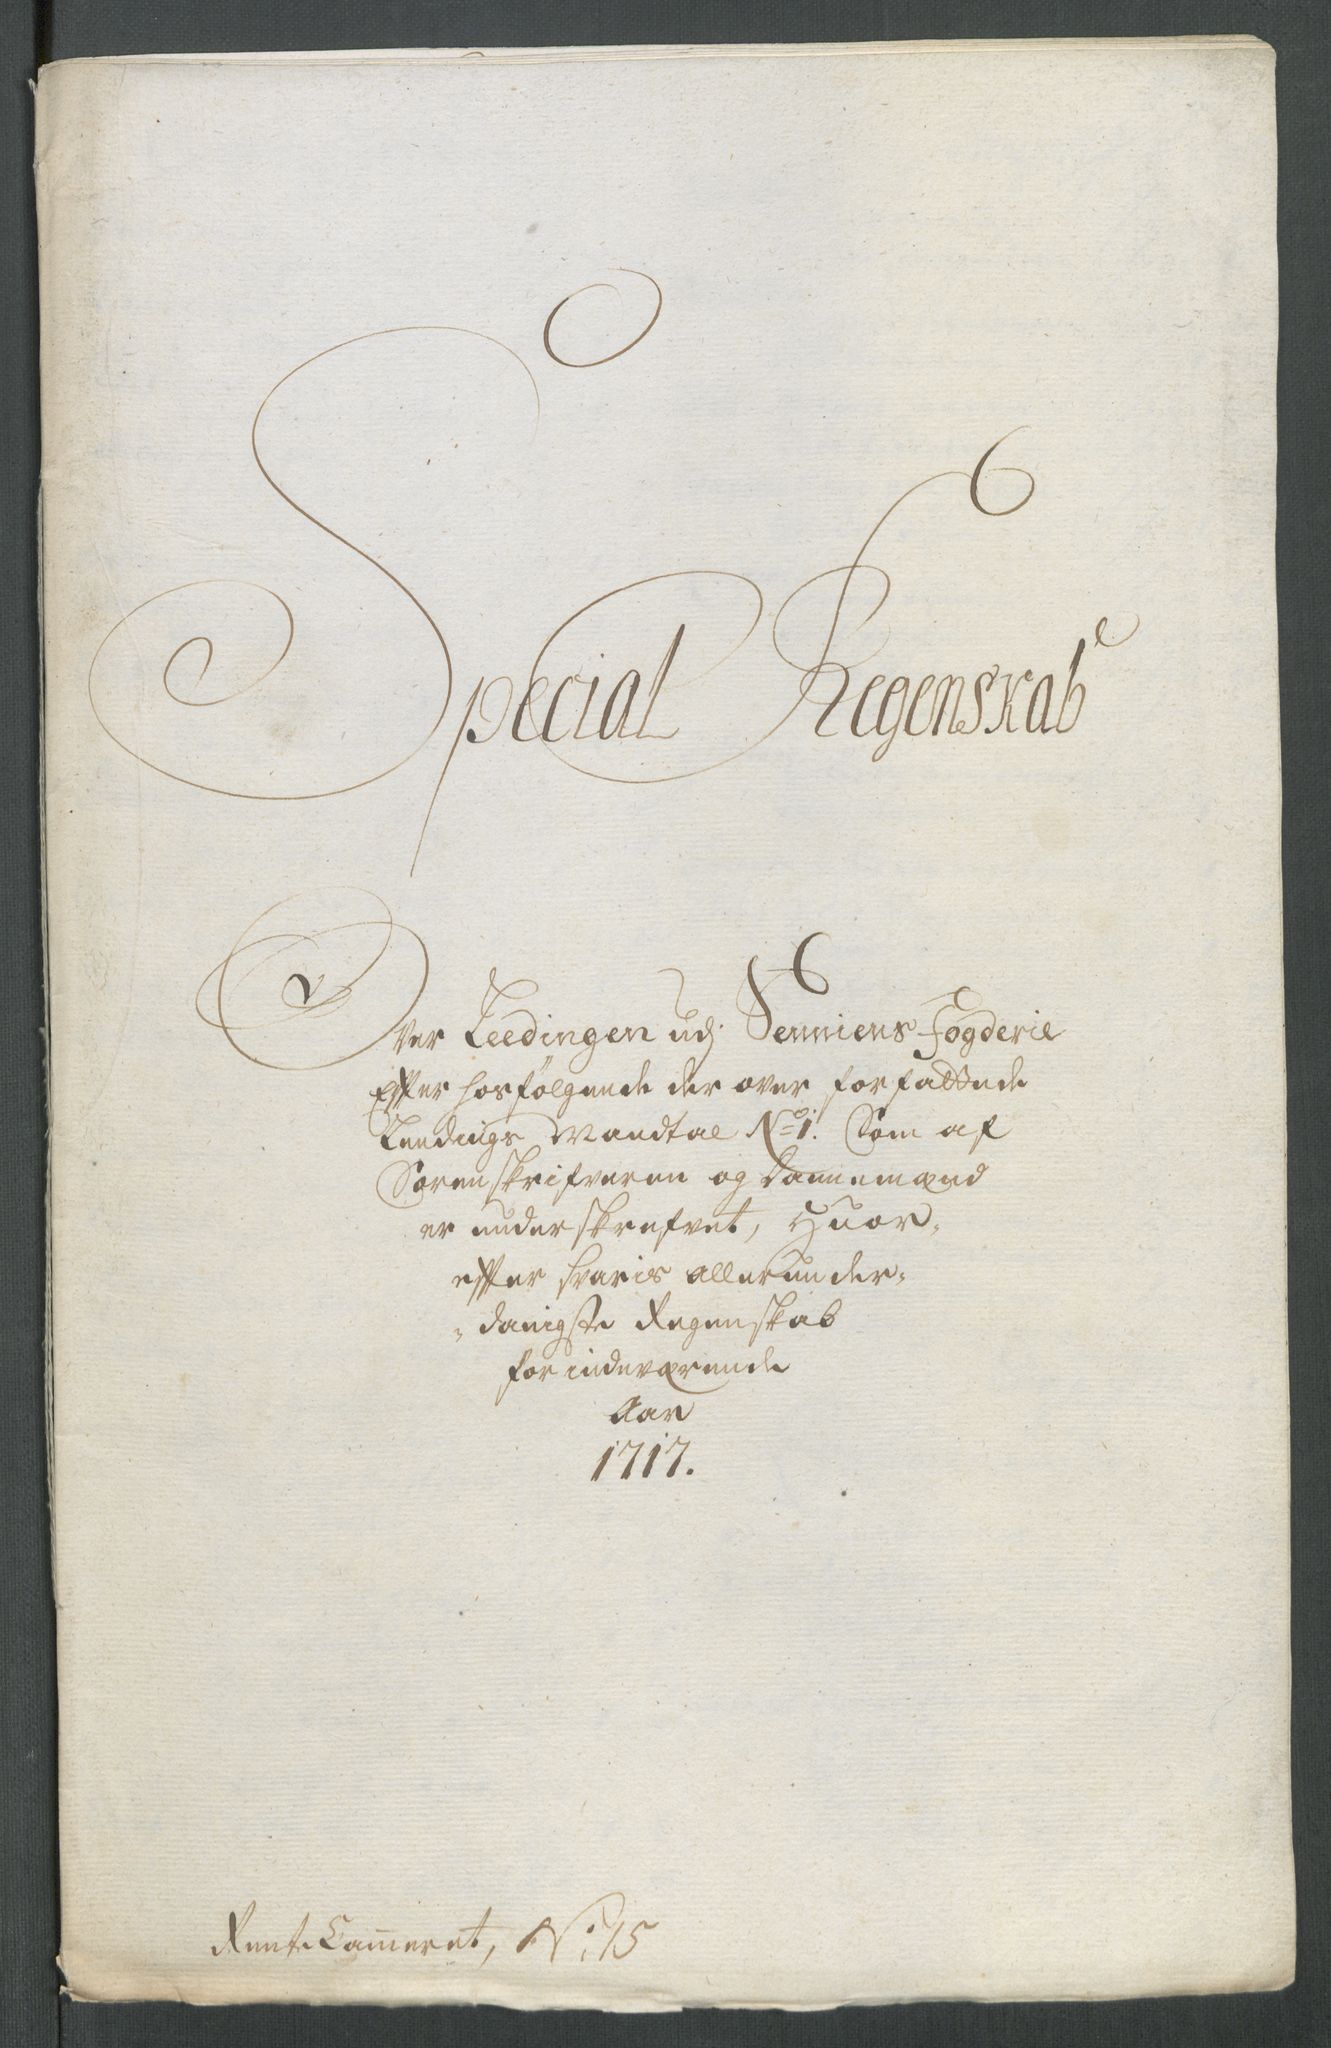 Special Regenskab
Over Leedingen udj Senniens Fogderie
Effter hosfølgende der over forfattede
Leedings Mandtal No 1. Som af
Sorenskrifveren og Dannemænd
er underskrefvet, Huor-
effter svaris allerunder-
-danigste Regenskab
for indeværende
Aar
1717.
Rente Cammeret, No: 15